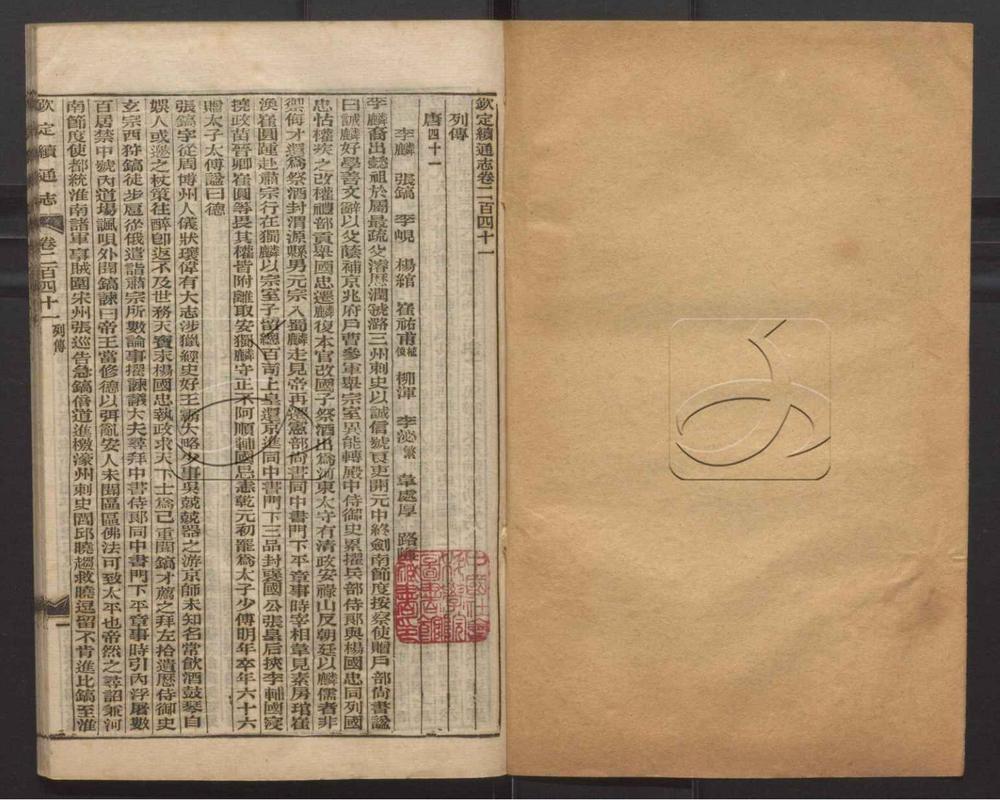 欽定續通志卷二百四十一
列傳
唐四十一
李麟 張鎬 李峴 楊綰 崔祐甫植俊 柳渾 李泌繁 韋處厚 路
李麟裔出懿祖於屬最疏父濬歷潤虢潞三州刺史以誠信號良吏開元中終劍南節度按察使贈戶部尚書諡
曰誠麟好學善文辭以父蔭補京兆府戶曹參軍舉宗室異能轉殿中侍御史累擢兵部侍郎與楊國忠同列國
忠怙權疾之改權禮部貢舉國忠遷麟復本官改國子祭酒出為河東太守有清政安祿山反朝廷以麟儒者非
禦侮才還為祭酒封渭源縣男元宗入蜀麟走見帝再遷憲部尚書同中書門下平章事時宰相韋見素房琯崔
渙崔圓踵赴肅宗行在獨麟以宗室子留總百司上皇還京進同中書門下三品封襃國公張皇后挾李輔國寖
撓政苗晉卿崔圓等畏其權皆附離取安獨麟守正不阿順輔國忌恚乾元初罷為太子少傅明年卒年六十六
贈太子太傅諡曰德
張鎬字從周博州人儀狀瓌偉有大志涉獵經史好王霸大略少事吳兢兢器之游京師未知名常飲酒鼓琴自
娛人或邀之杖策往醉即返不及世務天寶末楊國忠執政求天下士為己重聞鎬才薦之拜左拾遺歷侍御史
玄宗西狩鎬徒步扈從俄遣詣肅宗所數論事擢諫議大夫尋拜中書侍郎同中書門下平章事時引內浮屠數
百居禁中號內道場諷唄外聞鎬諫曰帝王當修德以弭亂安人未聞區區佛法可致太平也帝然之尋詔兼河
南節度使都統淮南諸軍事賊圍宋州張巡告急鎬倍道進檄濠州刺史閭邱曉趨救曉逗留不肯進比鎬至淮
欽定續通志 卷二百四十一 列傳 一